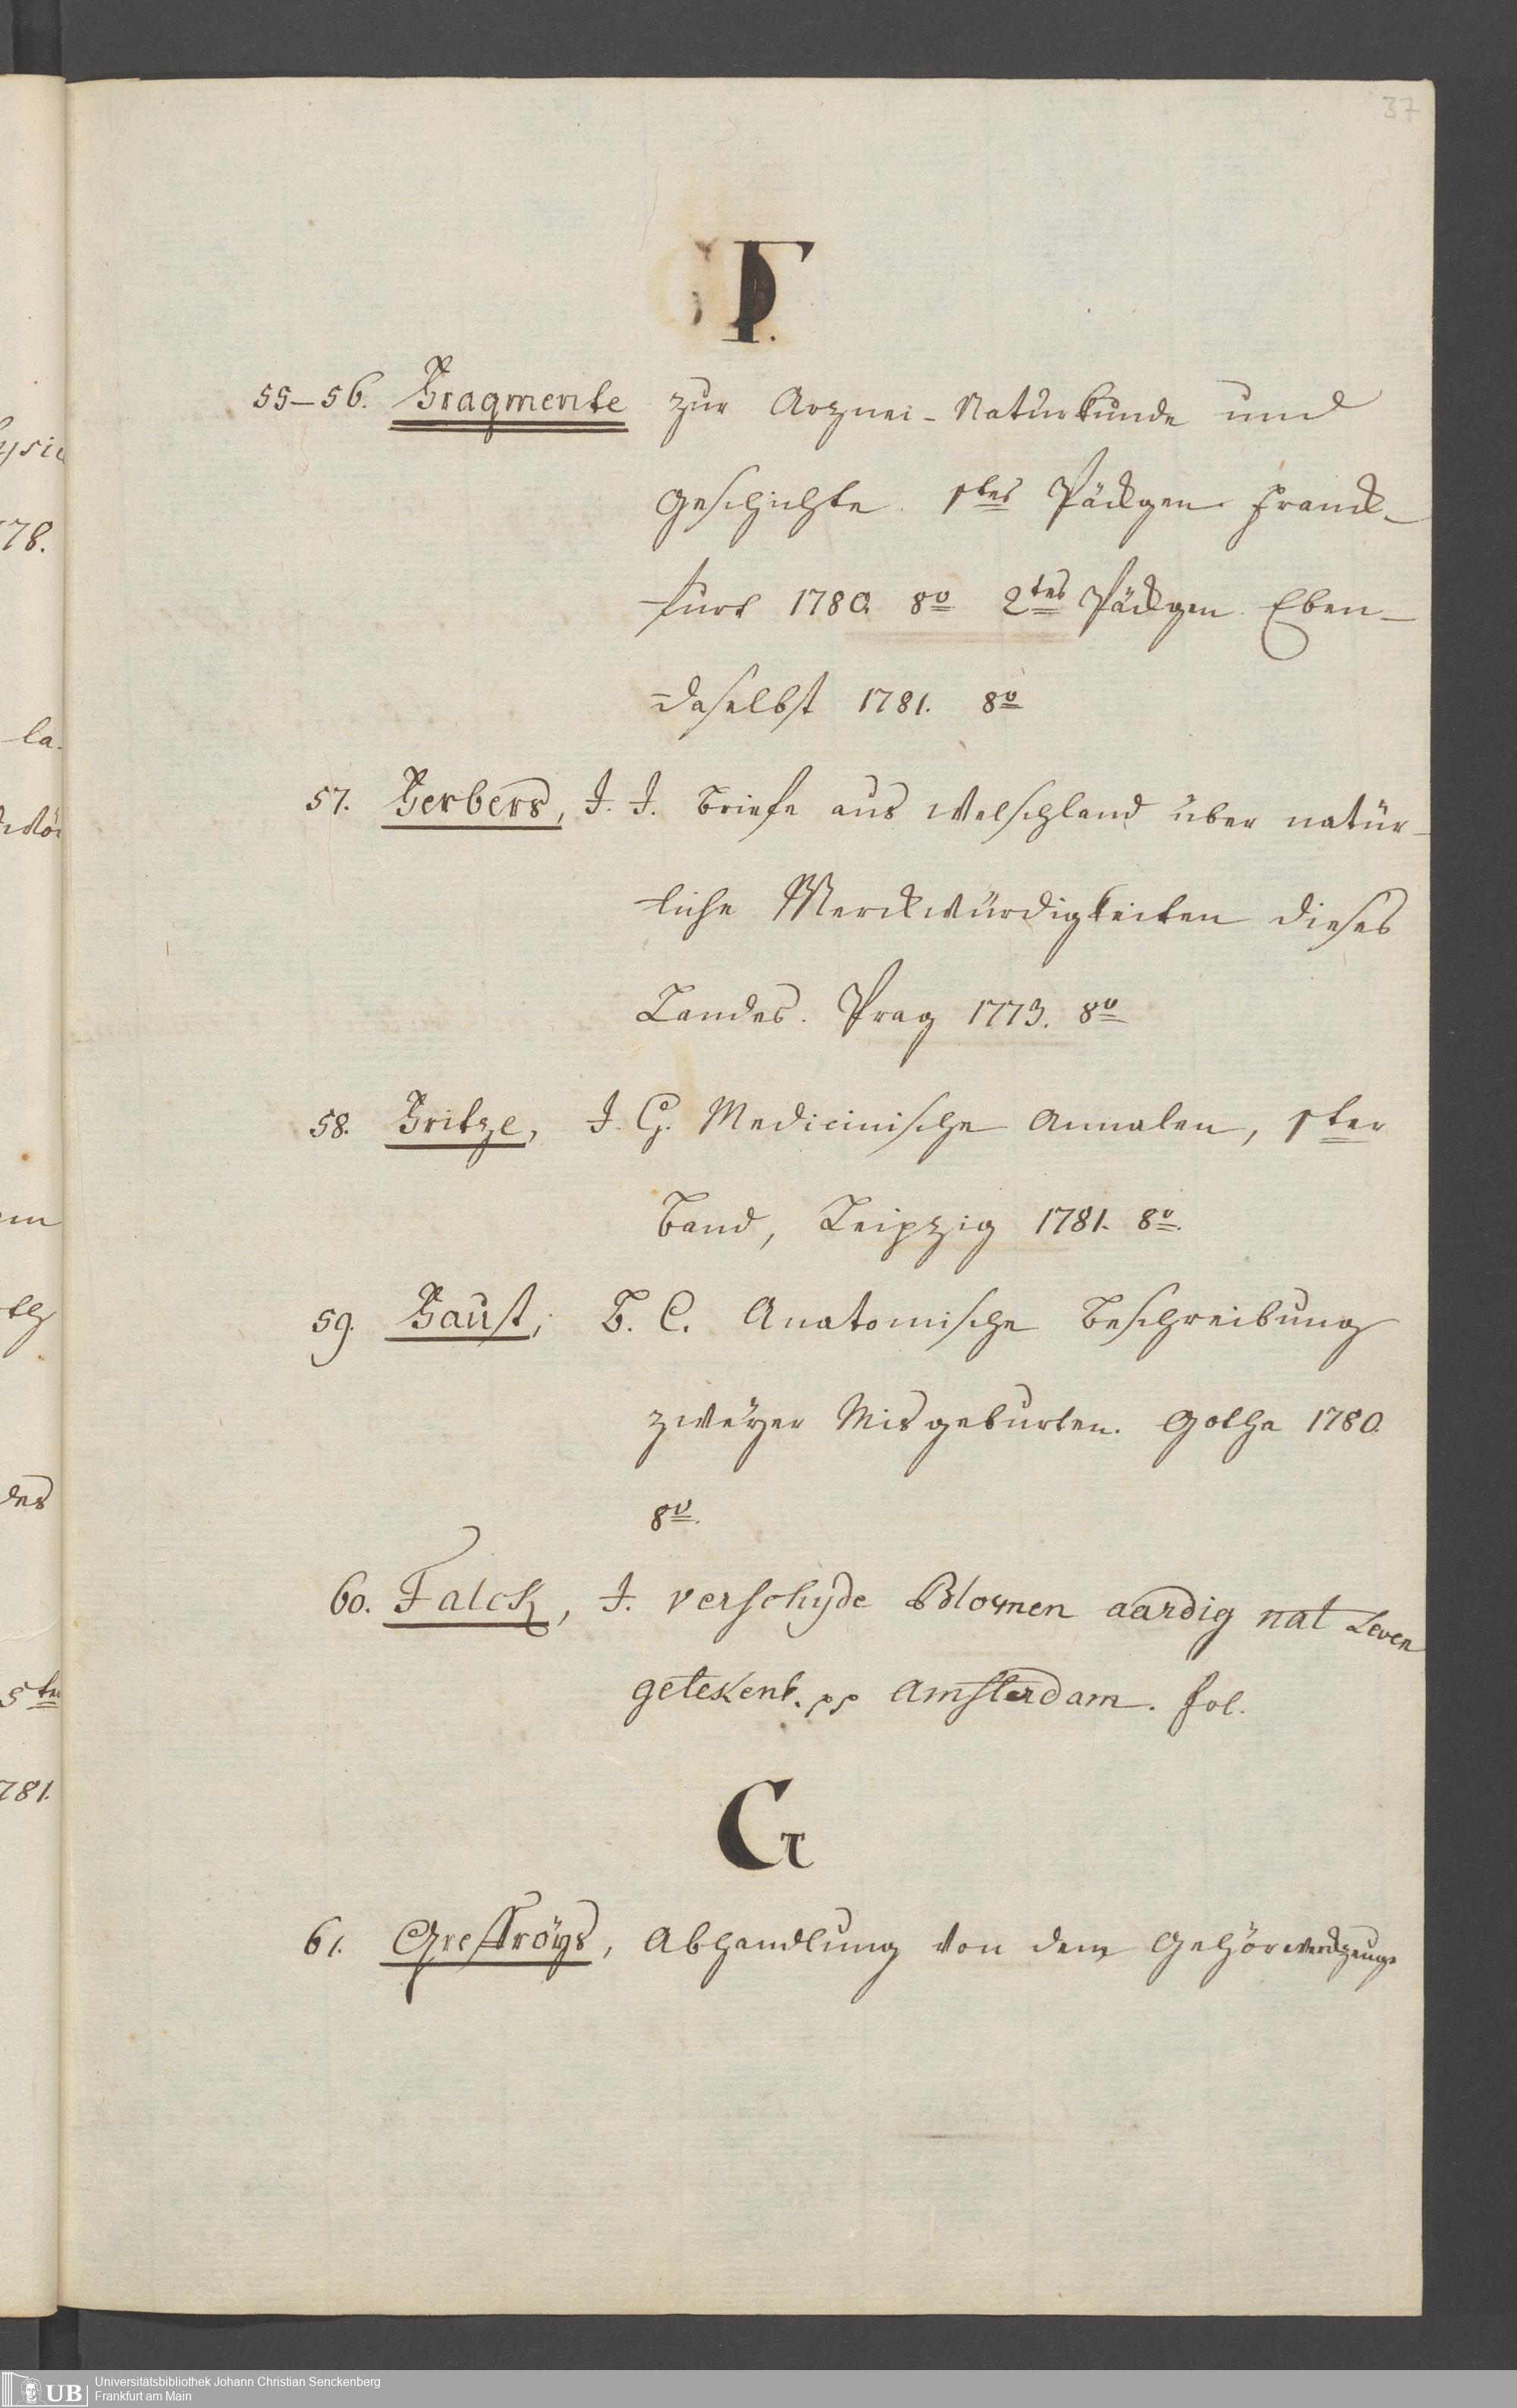 37
F.
55–56. Fragmente zur Arznei-Naturkunde und
Geschichte. 1tes Päckgen. Franck-
furt 1780. 8o 2tes Päckgen. Eben-
daselbst 1781. 8o
57. Ferbers, J. J. Briefe aus Welschland über natür-
liche Merckwürdigkeiten dieses
Landes. Prag 1773. 8o
58. Fritze, J. G. Medicinische Annalen, 1ter
Band, Leipzig 1781. 8o.
59. Faust, B. C. Anatomische Beschreibung
zweyer Misgeburten. Gotha 1780.
8o.
60. Falck, J. verschyde Bloemen aardig nat Leven
getekent. pp Amsterdam. fol.
G
61. Geffröys, Abhandlung von dem Gehörwerckzeuge
UB Universitätsbibliothek Johann Christian Senckenberg
Frankfurt am Main